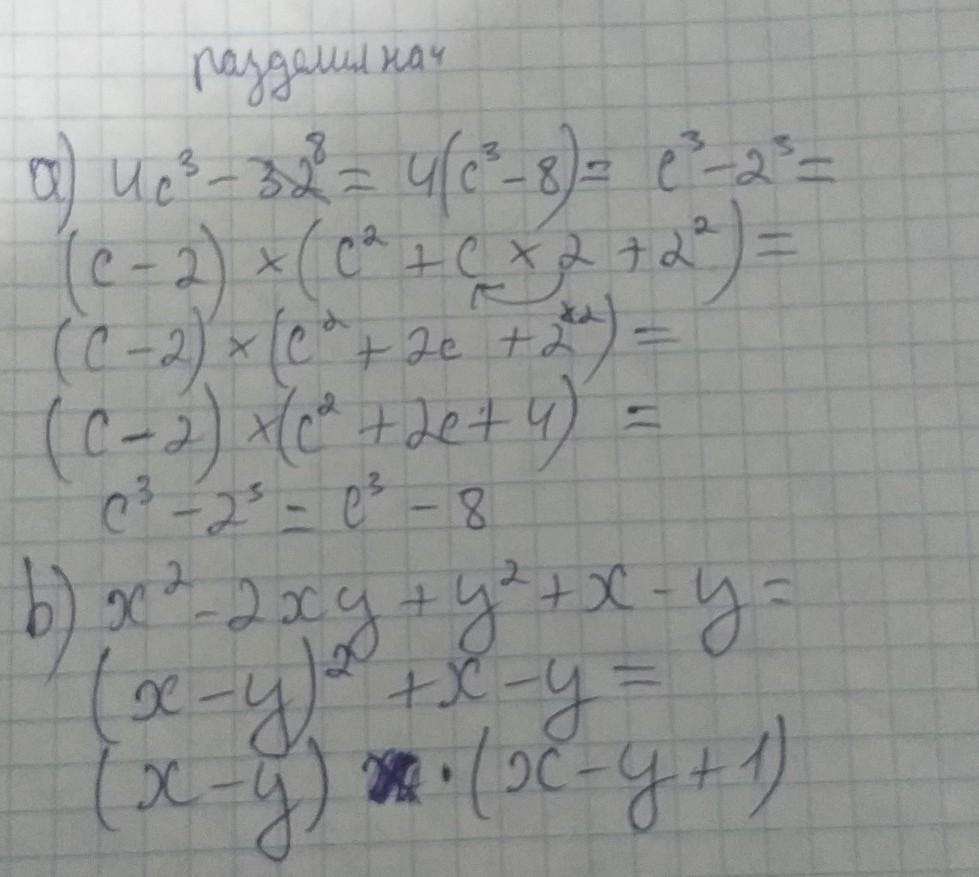 разделил на 4
a) 4c³ - 32⁸ = 4(c³ - 8) = c³ - 2³ =
(c - 2) × (c² + c × 2 + 2²) =
(c - 2) × (c² + 2c + 2ˣ²) =
(c - 2) × (c² + 2c + 4) =
c³ - 2³ = c³ - 8
b) x² - 2xy + y² + x - y =
(x - y)² + x - y =
(x - y) · (x - y + 1)